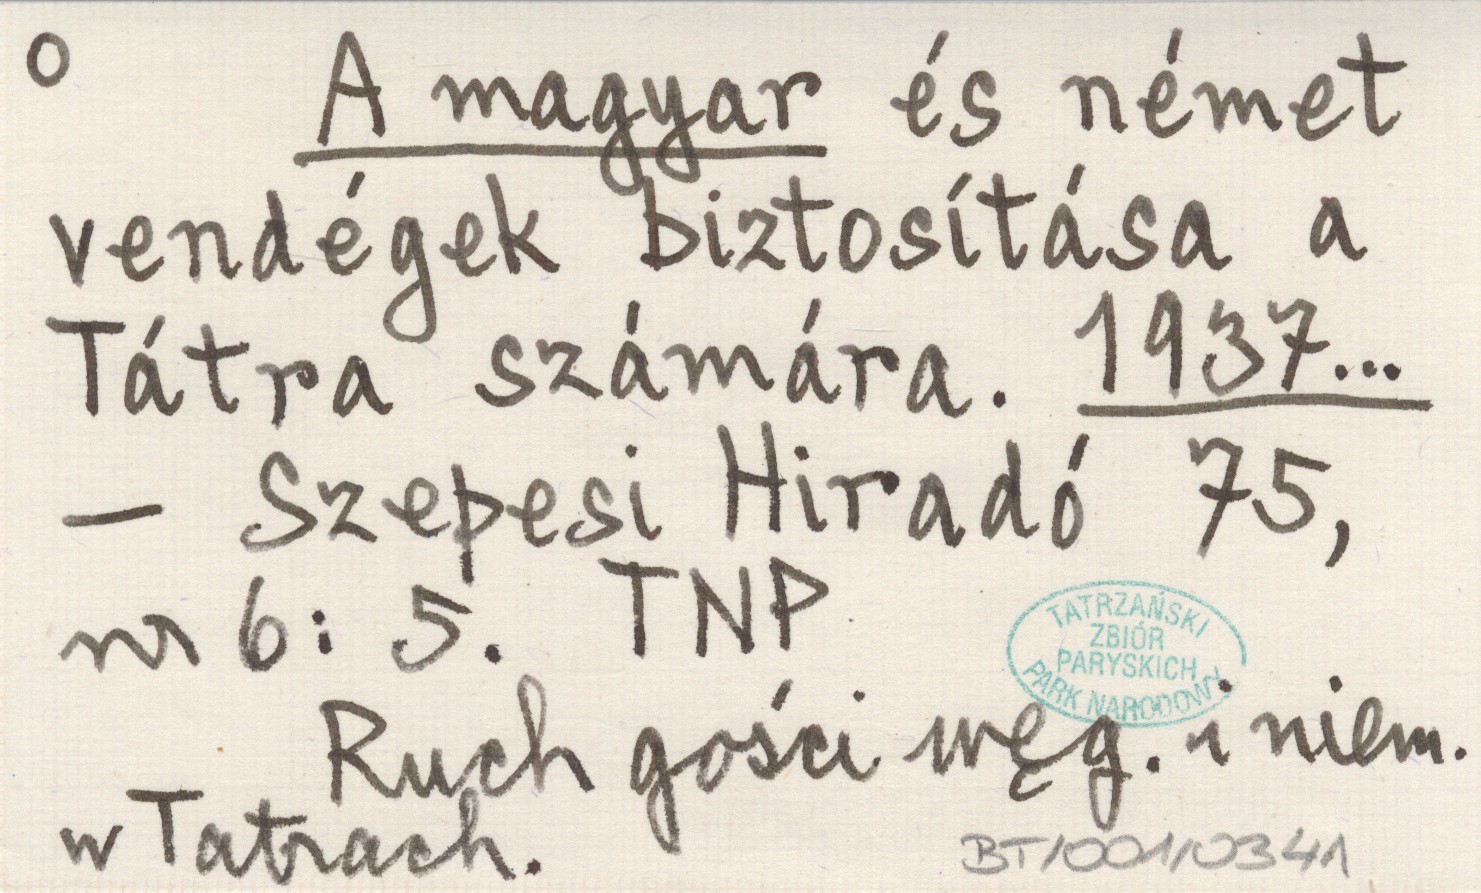 o A magyar és német
vendégek biztosítása a
Tátra számára. 1937...
– Szepesi Hiradó 75,
nr 6: 5. TNP
TATRZAŃSKI
ZBIÓR
PARYSKICH
PARK NARODOWY
Ruch gości węg. i niem.
w Tatrach.
BT/001/0341